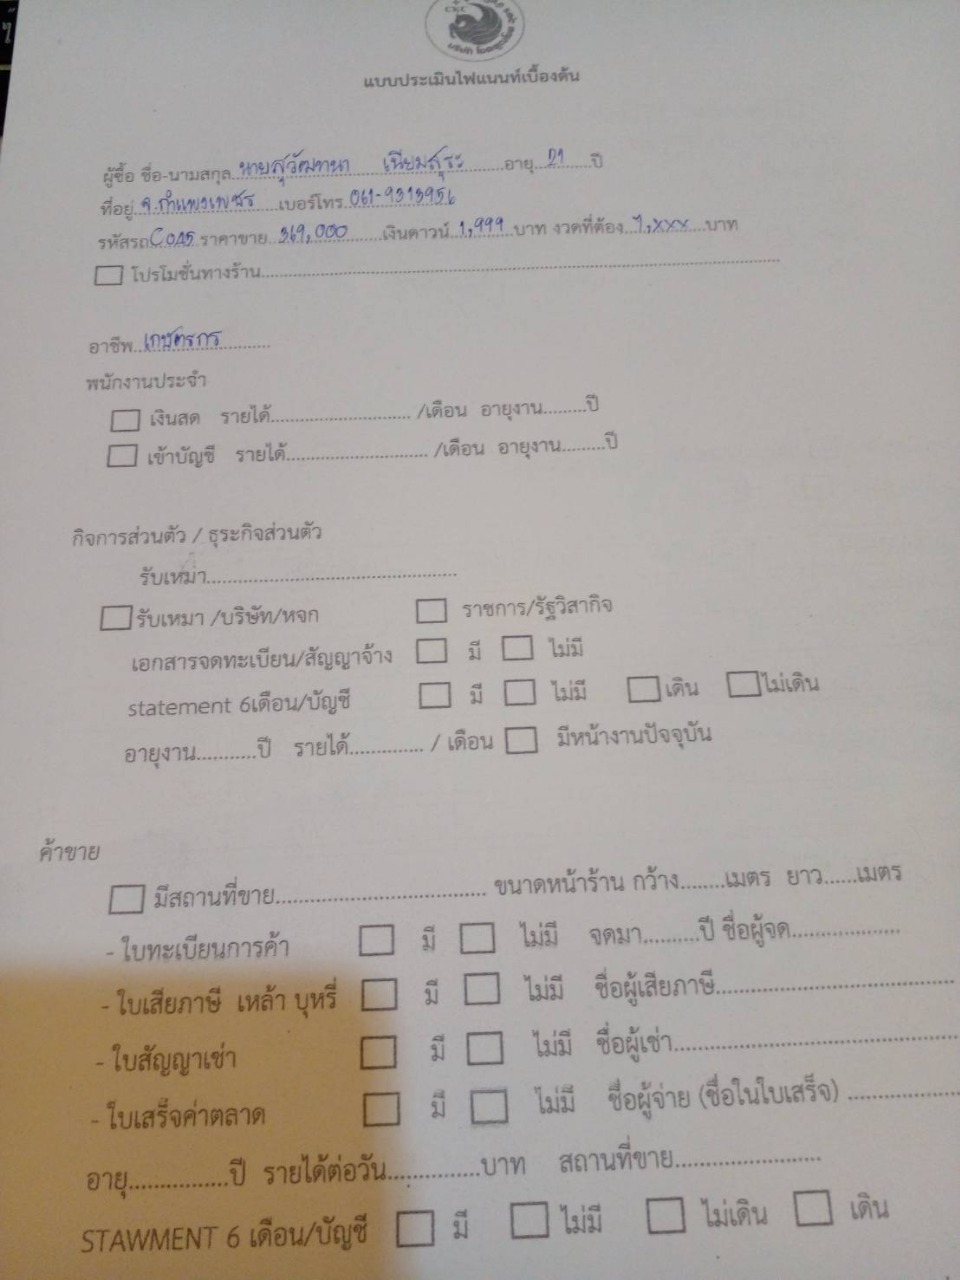 แบบประเมินไฟแนนท์เบื้องต้น
ผู้ซื้อ ชื่อ-นามสกุล นายสุวัฒทนา เนียมสุระ อายุ 21 ปี
ที่อยู่ จ.กำแพงเพชร เบอร์โทร 061-9313956
รหัสรถ C045 ราคาขาย 369,000 เงินดาวน์ 1,999 บาท งวดที่ต้อง 7,xxx บาท
โปรโมชั่นทางร้าน
อาชีพ เกษตรกร
พนักงานประจำ
เงินสด รายได้ /เดือน อายุงาน ปี
เข้าบัญชี รายได้ /เดือน อายุงาน ปี
กิจการส่วนตัว / ธุระกิจส่วนตัว
รับเหม่า
รับเหมา /บริษัท/หจก ราชการ/รัฐวิสากิจ
เอกสารจดทะเบียน/สัญญาจ้าง มี ไม่มี
statement 6เดือน/บัญชี มี ไม่มี เดิน ไม่เดิน
อายุงาน ปี รายได้ / เดือน มีหน้างานปัจจุบัน
ค้าขาย
มีสถานที่ขาย ขนาดหน้าร้าน กว้าง เมตร ยาว เมตร
- ใบทะเบียนการค้า มี ไม่มี จดมา ปี ชื่อผู้จด
- ใบเสียภาษี เหล้า บุหรี่ มี ไม่มี ชื่อผู้เสียภาษี
- ใบสัญญาเช่า มี ไม่มี ชื่อผู้เช่า
- ใบเสร็จค่าตลาด มี ไม่มี ชื่อผู้จ่าย (ชื่อในใบเสร็จ)
อายุ ปี รายได้ต่อวัน บาท สถานที่ขาย
STAWMENT 6 เดือน/บัญชี มี ไม่มี ไม่เดิน เดิน